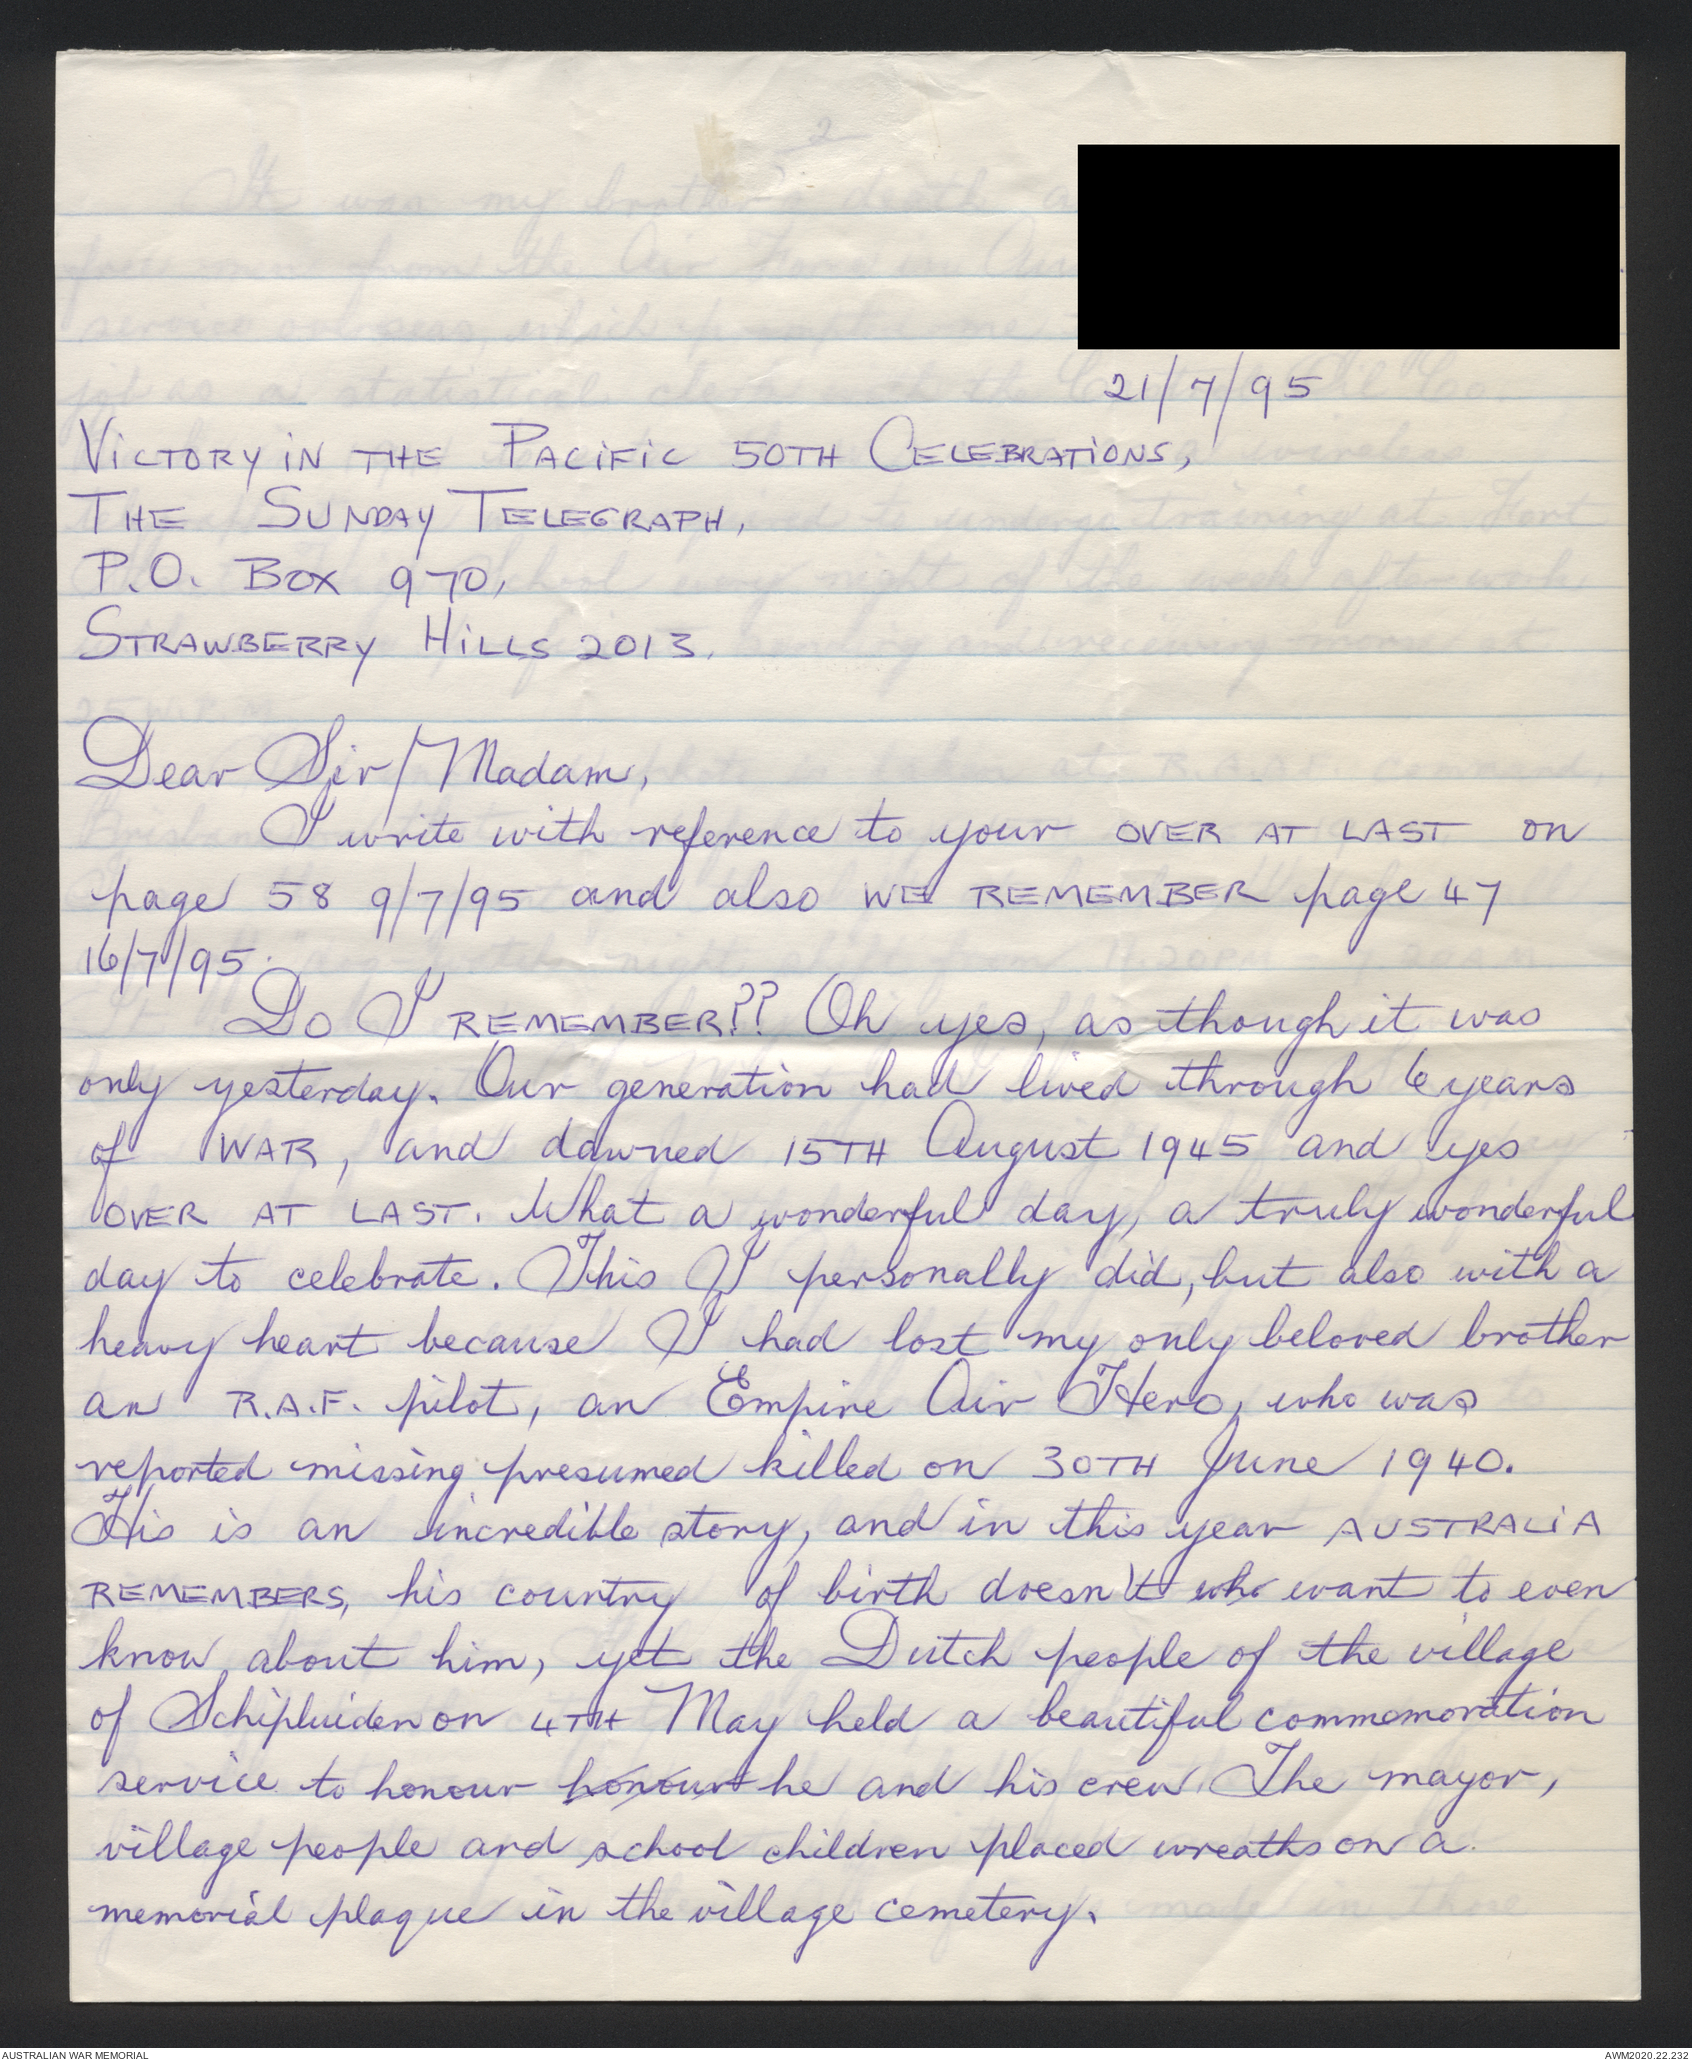 21/7/95
VICTORY IN THE PACIFIC 50TH CELEBRATIONS,
THE SUNDAY TELEGRAPH,
P.O. BOX 970,
STRAWBERRY HILLS 2013.
Dear Sir/Madam,
I write with reference to your OVER AT LAST on
page 58 9/7/95 and also WE REMEMBER page 47
16/7/95.
Do I REMEMBER?? Oh yes, as though it was
only yesterday. Our generation had lived through 6 years
of WAR, and dawned 15TH August 1945 and yes
OVER AT LAST. What a wonderful day, a truly wonderful
day to celebrate. This I personally did, but also with a
heavy heart because I had lost my only beloved brother
an R.A.F. pilot, an Empire Air Hero, who was
reported missing presumed killed on 30TH June 1940.
His is an incredible story, and in this year AUSTRALIA
REMEMBERS, his country of birth doesn't who want to even
know about him, yet the Dutch people of the village
of Schipluiden on 4TH May held a beautiful commemoration
service to honour honour he and his crew. The mayor,
village people and school children placed wreaths on a
memorial plaque in the village cemetery.
AUSTRALIAN WAR MEMORIAL
AWM2020.22.232